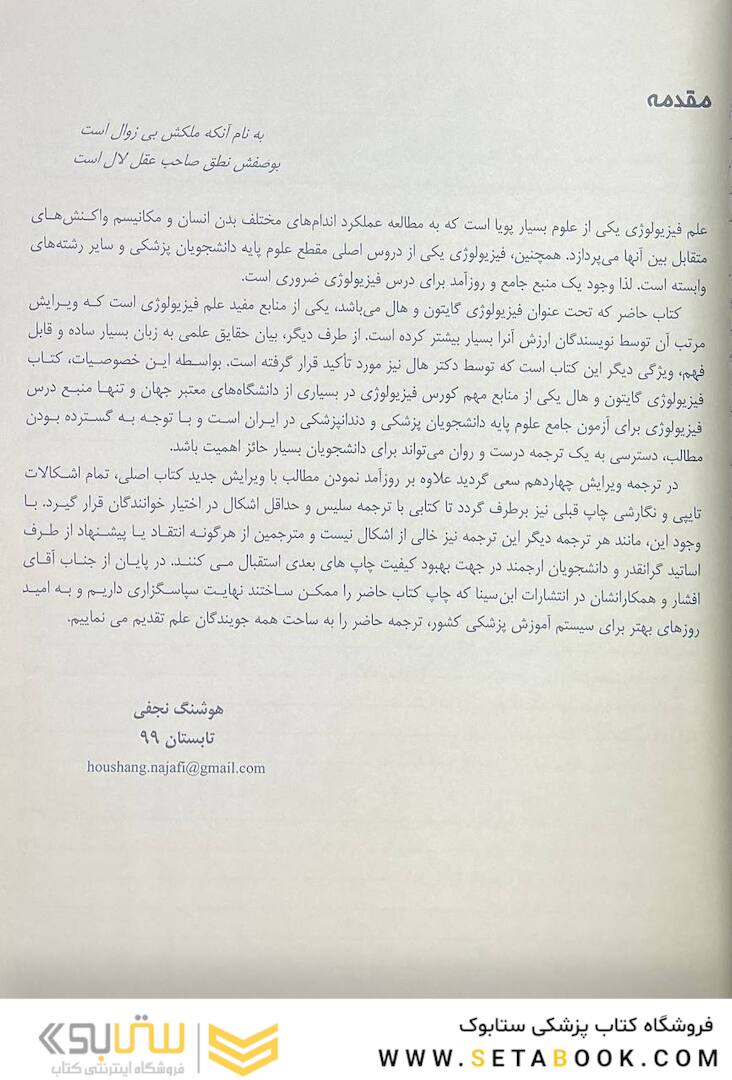 مقدمه
به نام آنکه ملکش بی زوال است
بوصفش نطق صاحب عقل لال است
علم فیزیولوژی یکی از علوم بسیار پویا است که به مطالعه عملکرد اندام‌های مختلف بدن انسان و مکانیسم واکنش‌های
متقابل بین آنها می‌پردازد. همچنین، فیزیولوژی یکی از دروس اصلی مقطع علوم پایه دانشجویان پزشکی و سایر رشته‌های
وابسته است. لذا وجود یک منبع جامع و روزآمد برای درس فیزیولوژی ضروری است.
کتاب حاضر که تحت عنوان فیزیولوژی گایتون و هال می‌باشد، یکی از منابع مفید علم فیزیولوژی است که ویرایش
مرتب آن توسط نویسندگان ارزش آنرا بسیار بیشتر کرده است. از طرف دیگر، بیان حقایق علمی به زبان بسیار ساده و قابل
فهم، ویژگی دیگر این کتاب است که توسط دکتر هال نیز مورد تأکید قرار گرفته است. بواسطه این خصوصیات، کتاب
فیزیولوژی گایتون و هال یکی از منابع مهم کورس فیزیولوژی در بسیاری از دانشگاه‌های معتبر جهان و تنها منبع درس
فیزیولوژی برای آزمون جامع علوم پایه دانشجویان پزشکی و دندانپزشکی در ایران است و با توجه به گسترده بودن
مطالب، دسترسی به یک ترجمه درست و روان می‌تواند برای دانشجویان بسیار حائز اهمیت باشد.
در ترجمه ویرایش چهاردهم سعی گردید علاوه بر روزآمد نمودن مطالب با ویرایش جدید کتاب اصلی، تمام اشکالات
تایپی و نگارشی چاپ قبلی نیز برطرف گردد تا کتابی با ترجمه سلیس و حداقل اشکال در اختیار خوانندگان قرار گیرد. با
وجود این، مانند هر ترجمه دیگر این ترجمه نیز خالی از اشکال نیست و مترجمین از هرگونه انتقاد یا پیشنهاد از طرف
اساتید گرانقدر و دانشجویان ارجمند در جهت بهبود کیفیت چاپ های بعدی استقبال می کنند. در پایان از جناب آقای
افشار و همکارانشان در انتشارات ابن‌سینا که چاپ کتاب حاضر را ممکن ساختند نهایت سپاسگزاری داریم و به امید
روزهای بهتر برای سیستم آموزش پزشکی کشور، ترجمه حاضر را به ساحت همه جویندگان علم تقدیم می نماییم.
هوشنگ نجفی
تابستان ۹۹
houshang.najafi@gmail.com
فروشگاه کتاب پزشکی ستابوک
WWW.SETABOOK.COM
ستابوک
فروشگاه اینترنتی کتاب